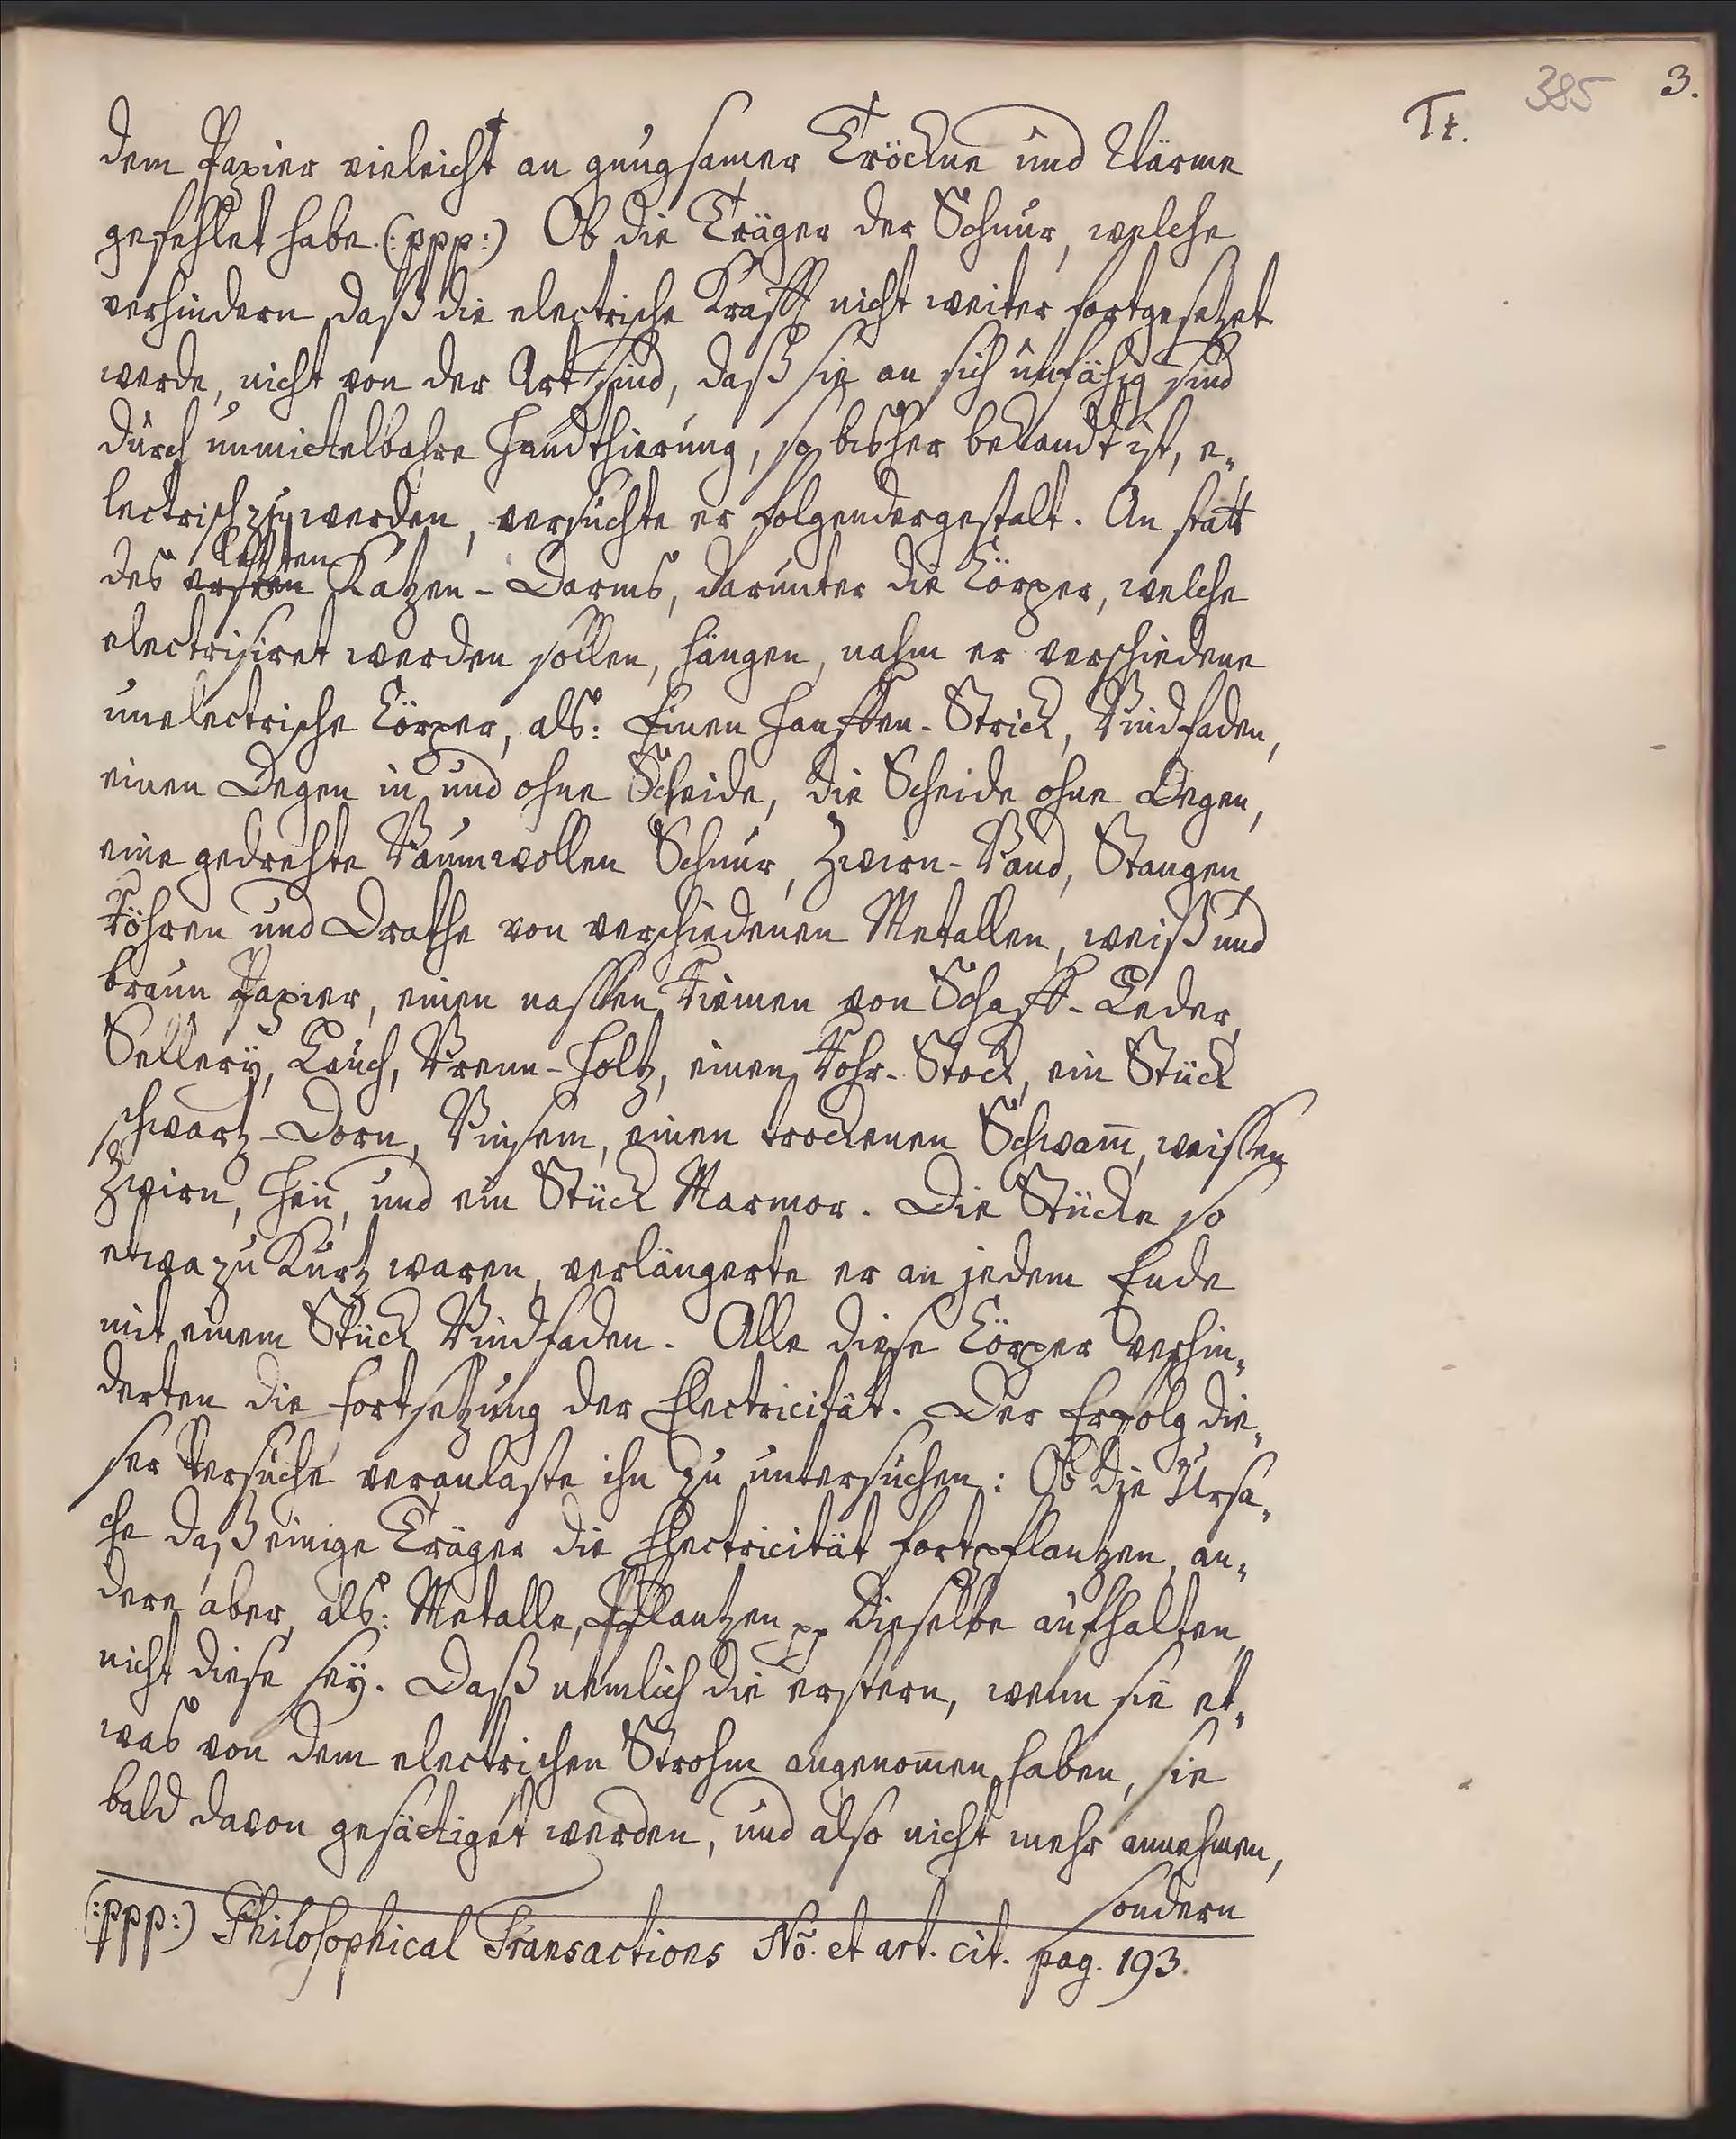 385 3.
Tt.
dem Papier vieleicht an gnugsamer Tröckne und Wärme
gefehlet habe. (:ppp:) Ob die Träger der Schnur, welche
verhindern daß die electrische Krafft nicht weiter fortgesetzet
werde, nicht von der Art sind, daß sie an sich unfähig sind
durch unmittelbahre Handthierung, so bisher bekandt ist, e„
lectrisch zu werden, versuchte er folgendergestalt. An statt
letzten
des ersten Katzen-Darms, darunter die Cörper, welche
electrisiret werden sollen, hängen, nahm er verschiedene
unelectrische Cörper, als: Einen Hanffen-Strick, Bindfaden,
einen Degen in und ohne Scheide, die Scheide ohne Degen,
eine gedrehte Baumwollen Schnur, Zwirn-Band, Stangen
Röhren und Drathe von verschiedenen Metallen, weiß und
braun Papier, einen nassen Riemen von Schaff-Leder,
Sellery, Lauch, Brenn-Holtz, einen Rohr-Stock, ein Stück
schwartz-Dorn, Binsem, einen trockenen Schwam̅, weissen
Zwirn, Heu, und ein Stück Marmor. Die Stücke so
etwa zu Kurtz waren, verlängerte er an jedem Ende
mit einem Stück Bindfaden. Alle diese Cörper verhin„
derten die Fortsetzung der Electricität. Der Erfolg die„
ser Versuche veranlaste ihn zu untersuchen: Ob die Ursa„
che daß einige Träger die Electricität fortpflantzen, an„
dere aber, als: Metalle, Pflantzen pp dieselbe aufhalten,
nicht diese seÿ. Daß nemlich die erstern, wenn sie et„
was von dem electrichen Strohm angenom̅en haben, sie
bald davon gesättiget werden, und also nicht mehr annehmen,
sondern
(:ppp:) Philosophical Transactions No. et art. cit. pag. 193.